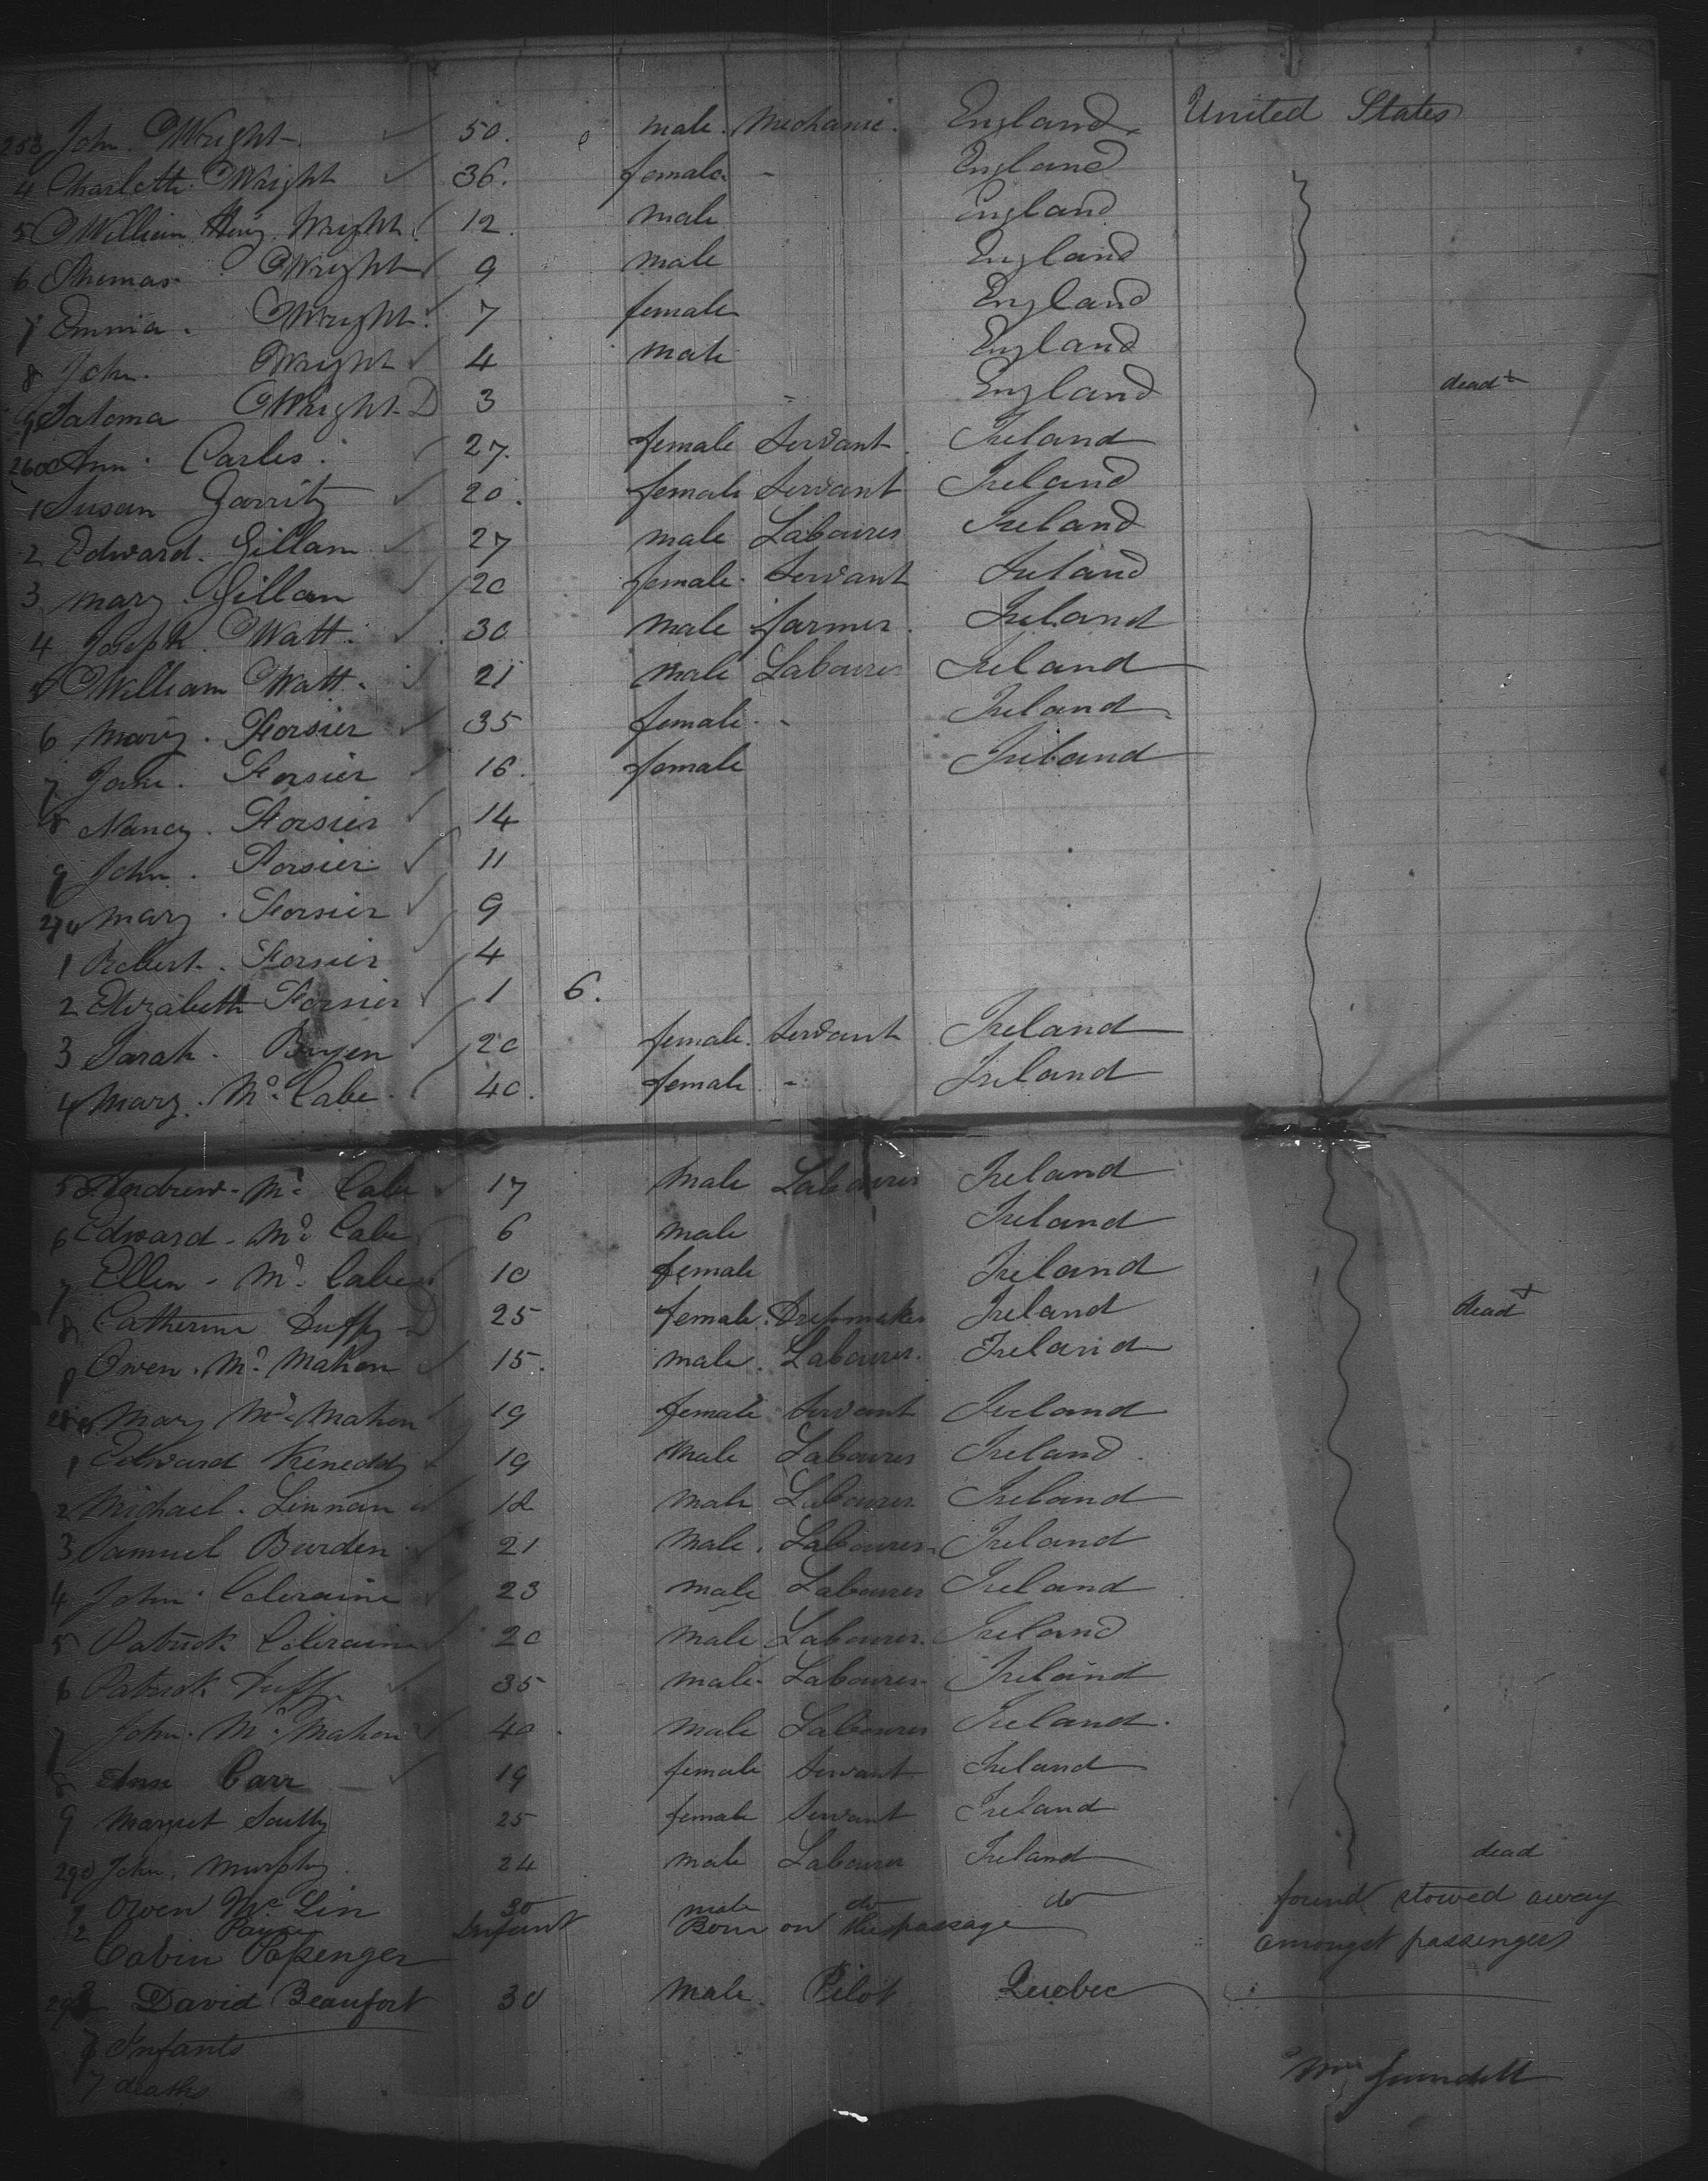 253 John Wright 50. male. Mechanic. England. United States
4 Charlotte Wright 36. female - England
5 William Henry Wright 12. male England
6 Thomas Wright 9 male England
7 Emma. Wright 7 female England
8 John. Wright 4 male England
9 Wright D 3 England dead +
260 Ann. Carles. 27. female Servant. Ireland
1 Susan Garrity 20. female Servant Ireland
2 Edward. Gillan 27 male Labourer Ireland
3 Mary. Gillan 20 female. Servant Ireland
4 Joseph. Watt. 30 male farmer. Ireland
5 William Watt. 21 male Labourer Ireland
6 Mary. Forsier 35 female. - Ireland
7 Jane. Forsier 16. female Ireland
8 Nancy. Forsier 14
9 John. Forsier 11
270 Mary. Forsier 9
1 Robert. Forsier 4
2 Elizabeth Forsier 1 6.
3 Sarah. Bryen 20 female. Servant Ireland
4 Mary. Mc Cabe. 40. female - Ireland
5 Andrew. Mc Cabe 17 male Labourer Ireland
6 Edward. Mc Cabe 6 male Ireland
7 Ellen - Mc Cabe 10 female Ireland
8 Catherine Duffy D 25 female. Dressmaker Ireland dead +
9 Owen. Mc Mahon 15. male. Labourer. Ireland
280 Mary Mc Mahon 19 female Servant Ireland
1 Edward Keneddy 19 male Labourer Ireland.
2 Michael. Linnan 18 male Labourer Ireland
3 Samuel Burden 21 male. Labourer Ireland
4 John. Coleraine 23 male Labourer Ireland
5 Patrick Coleraine 20 male Labourer. Ireland
6 Patrick Duffy 35 male. Labourer Ireland
7 John. Mc Mahon 40. male Labourer Ireland.
8 Ann Carr 19 female Servant Ireland
9 Margret Scully 25 female Servant Ireland
290 John. Murphy. 24 male Labourer Ireland dead
1 Owen Mc Lin 30 male do do found stowed away
2 Infant Born on the passage amongst passengers
Cabin Passenger
293 David Beaufort 30 male. Pilot Quebec
Infants
7 deaths